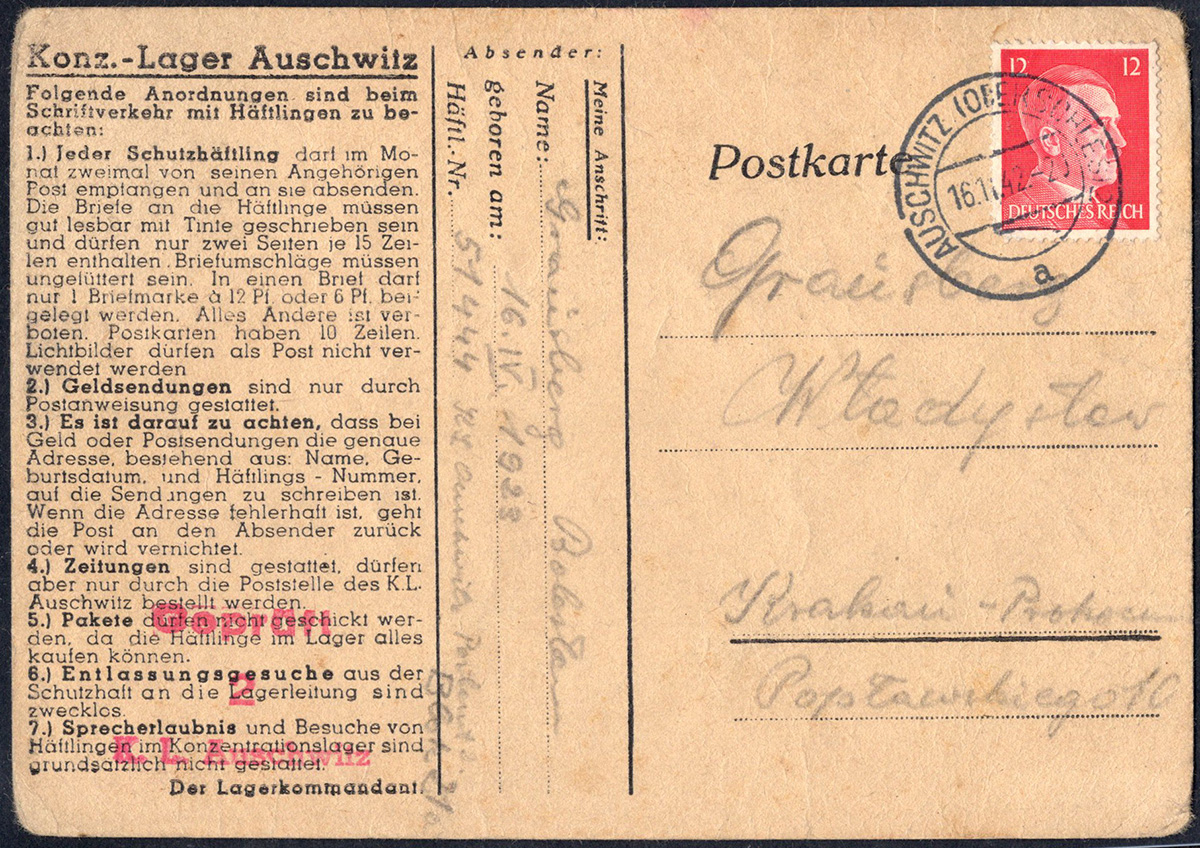 Konz.-Lager Auschwitz
Folgende Anordnungen sind beim
Schriftverkehr mit Häftlingen zu be-
achten:
1.) Jeder Schutzhäftling darf im Mo-
nat zweimal von seinen Angehörigen
Post empfangen und an sie absenden.
Die Briefe an die Häftlinge müssen
gut lesbar mit Tinte geschrieben sein
und dürfen nur zwei Seiten je 15 Zei-
len enthalten. Briefumschläge müssen
ungefüttert sein. In einen Brief darf
nur 1 Briefmarke à 12 Pf. oder 6 Pf. bei-
gelegt werden. Alles Andere ist ver-
boten. Postkarten haben 10 Zeilen.
Lichtbilder dürfen als Post nicht ver-
wendet werden
2.) Geldsendungen sind nur durch
Postanweisung gestattet.
3.) Es ist darauf zu achten, dass bei
Geld oder Postsendungen die genaue
Adresse, bestehend aus: Name, Ge-
burtsdatum, und Häftlings - Nummer,
auf die Sendungen zu schreiben ist.
Wenn die Adresse fehlerhaft ist, geht
die Post an den Absender zurück
oder wird vernichtet.
4.) Zeitungen sind gestattet, dürfen
aber nur durch die Poststelle des K.L.
Auschwitz bestellt werden.
5.) Pakete dürfen nicht geschickt wer-
den, da die Häftlinge im Lager alles
kaufen können.
6.) Entlassungsgesuche aus der
Schutzhaft an die Lagerleitung sind
zwecklos.
7.) Sprecherlaubnis und Besuche von
Häftlingen im Konzentrationslager sind
grundsätzlich nicht gestattet.
Der Lagerkommandant.
Geprüft
2
K. L. Auschwitz
Absender:
Meine Anschrift:
Name: Grausberg
geboren am: 16. IV. 1923
Häftl.-Nr. 51444 KL Auschwitz
Block
Postkarte
12 12
DEUTSCHES REICH
AUSCHWITZ (OBERSCHLES)
a
Grausberg
Władysław
Krakau - Prokocim
Popławskiego 10